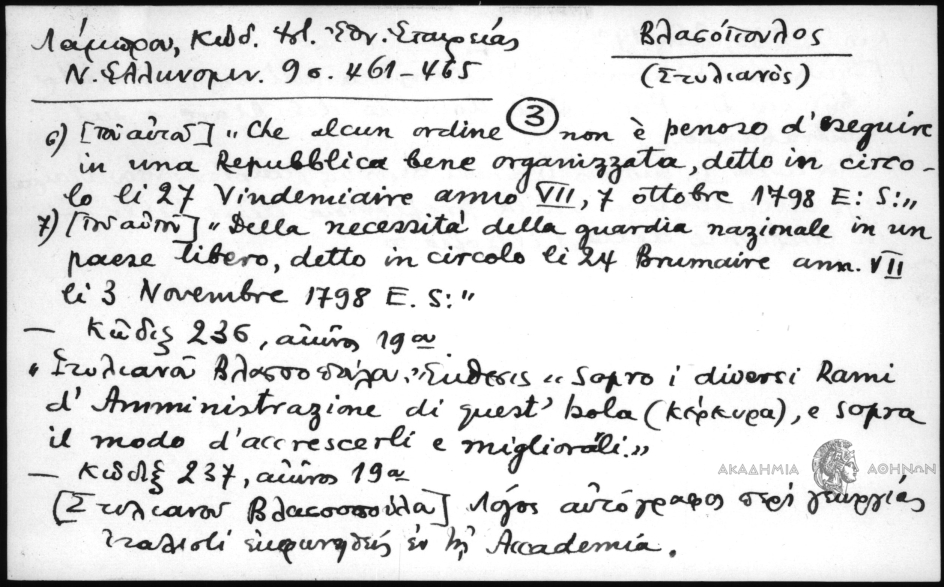 Λάμπρου, Κώδ. Ἱστ. Ἐθν. Ἑταιρείας
Ν. Ἑλληνομν. 9 σ. 461-465
Βλασόπουλος
(Στυλιανὸς)
3
6) [τοῦ αὐτοῦ] „Che alcun ordine non è penoso d'eseguire
in una Repubblica bene organizzata, detto in circo-
lo li 27 Vindemiaire anno VII, 7 ottobre 1798 E: S:"
7) [τοῦ αὐτοῦ] „Della necessità della guardia nazionale in un
paese libero, detto in circolo li 24 Brumaire ann. VII
li 3 Novembre 1798 E. S:"
— Κῶδιξ 236, αἰῶνος 19ου
„Στυλιανοῦ Βλασσοπούλου, Ἔκθεσις „Sopro i diversi Rami
d'Amministrazione di quest' Isola (Κέρκυρα), e sopra
il modo d'accrescerli e migliorarli."
— Κῶδιξ 237, αἰῶνος 19ου
[Στυλιανοῦ Βλασσοπούλου] Λόγος αὐτόγραφος περὶ γεωργίας
Ἰταλιστί ἐκφωνηθείς ἐν τῇ Accademia.
ΑΚΑΔΗΜΙΑ ΑΘΗΝΩΝ